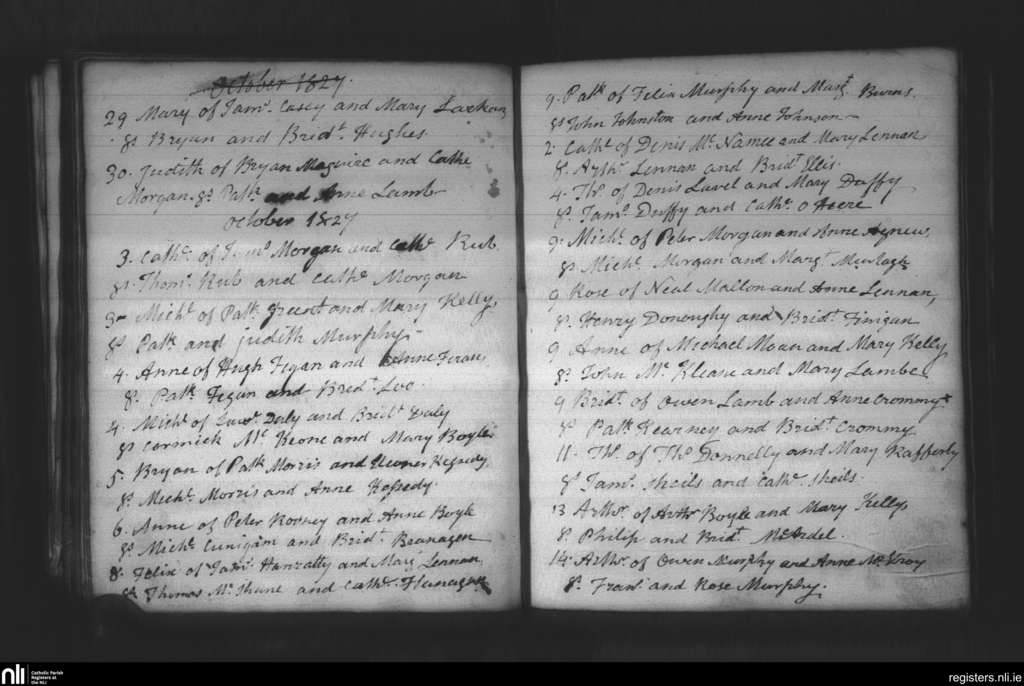 October 1827.
29 Mary of Jams. Casey and Mary Larkon
Ss Bryan and Bridt. Hughes
30. Judith of Bryan Maguire and Cathe
Morgan. Ss. Patk and Anne Lamb
October 1827
3. Cathe. of Morgan and Cathe Rub.
Ss. Thoms. Rub and Cathe Morgan
3 Michl. of Patk. Grant and Mary Kelly,
Ss Patk and judith Murphy
4. Anne of Hugh Fegan and Anne
Ss. Patk Fegan and Bridt. Loo.
4. Michl. of Lawr. Daly and Bridt. Daly
Ss Cormick Mc. Keone and Mary Boyle
5. Bryan of Patk Morris and Kennedy
Ss. Michl. Morris and Anne
6. Anne of Peter Rooney and Anne Boyle
Ss. Michl. Cunigam and Bridt. Branagen
8. Felix of Jams. Hanratty and Marg Lennon
Ss Thomas Mc. Shane and Cathe. Flanagan
9. Patk of Felix Murphy and Margt. Burns.
Ss John Johnston and Anne Johnson
2. Cathe. of Denis Mc. Namee and Mary Lennan
Ss. Arthr. Lennan and Bridt Ellis.
4. Ths. of Denis Lavel and Mary Duffy
Ss. Jams. Duffy and Cathe. O Heere
9. Michl. of Peter Morgan and Anne Agnew,
Ss Michl. Morgan and Margt. Murtagh
9 Rose of Neal Mallon and Anne Lennan,
Ss. Henry Donoughy and Bridt. Finigan
9 Anne of Michael Moan and Mary Kelly
Ss. John Mc. Kleane and Mary Lambe
9 Bridt. of Owen Lamb and Anne Crommy
Ss Patk Kearney and Bridt. Crommy
11. Ths. of Ths Donnelly and Mary Rafferty
Ss Jams. Sheils and Cathe. Sheils.
13 Arthr. of Arthr Boyle and Mary Kelly
Ss. Philip and Bridt. McArdel.
14. Arthr. of Owen Murphy and Anne Mc Vroy
Ss. Frans. and Rose Murphy.
nli
Catholic Parish
Registers at
the NLI
registers.nli.ie